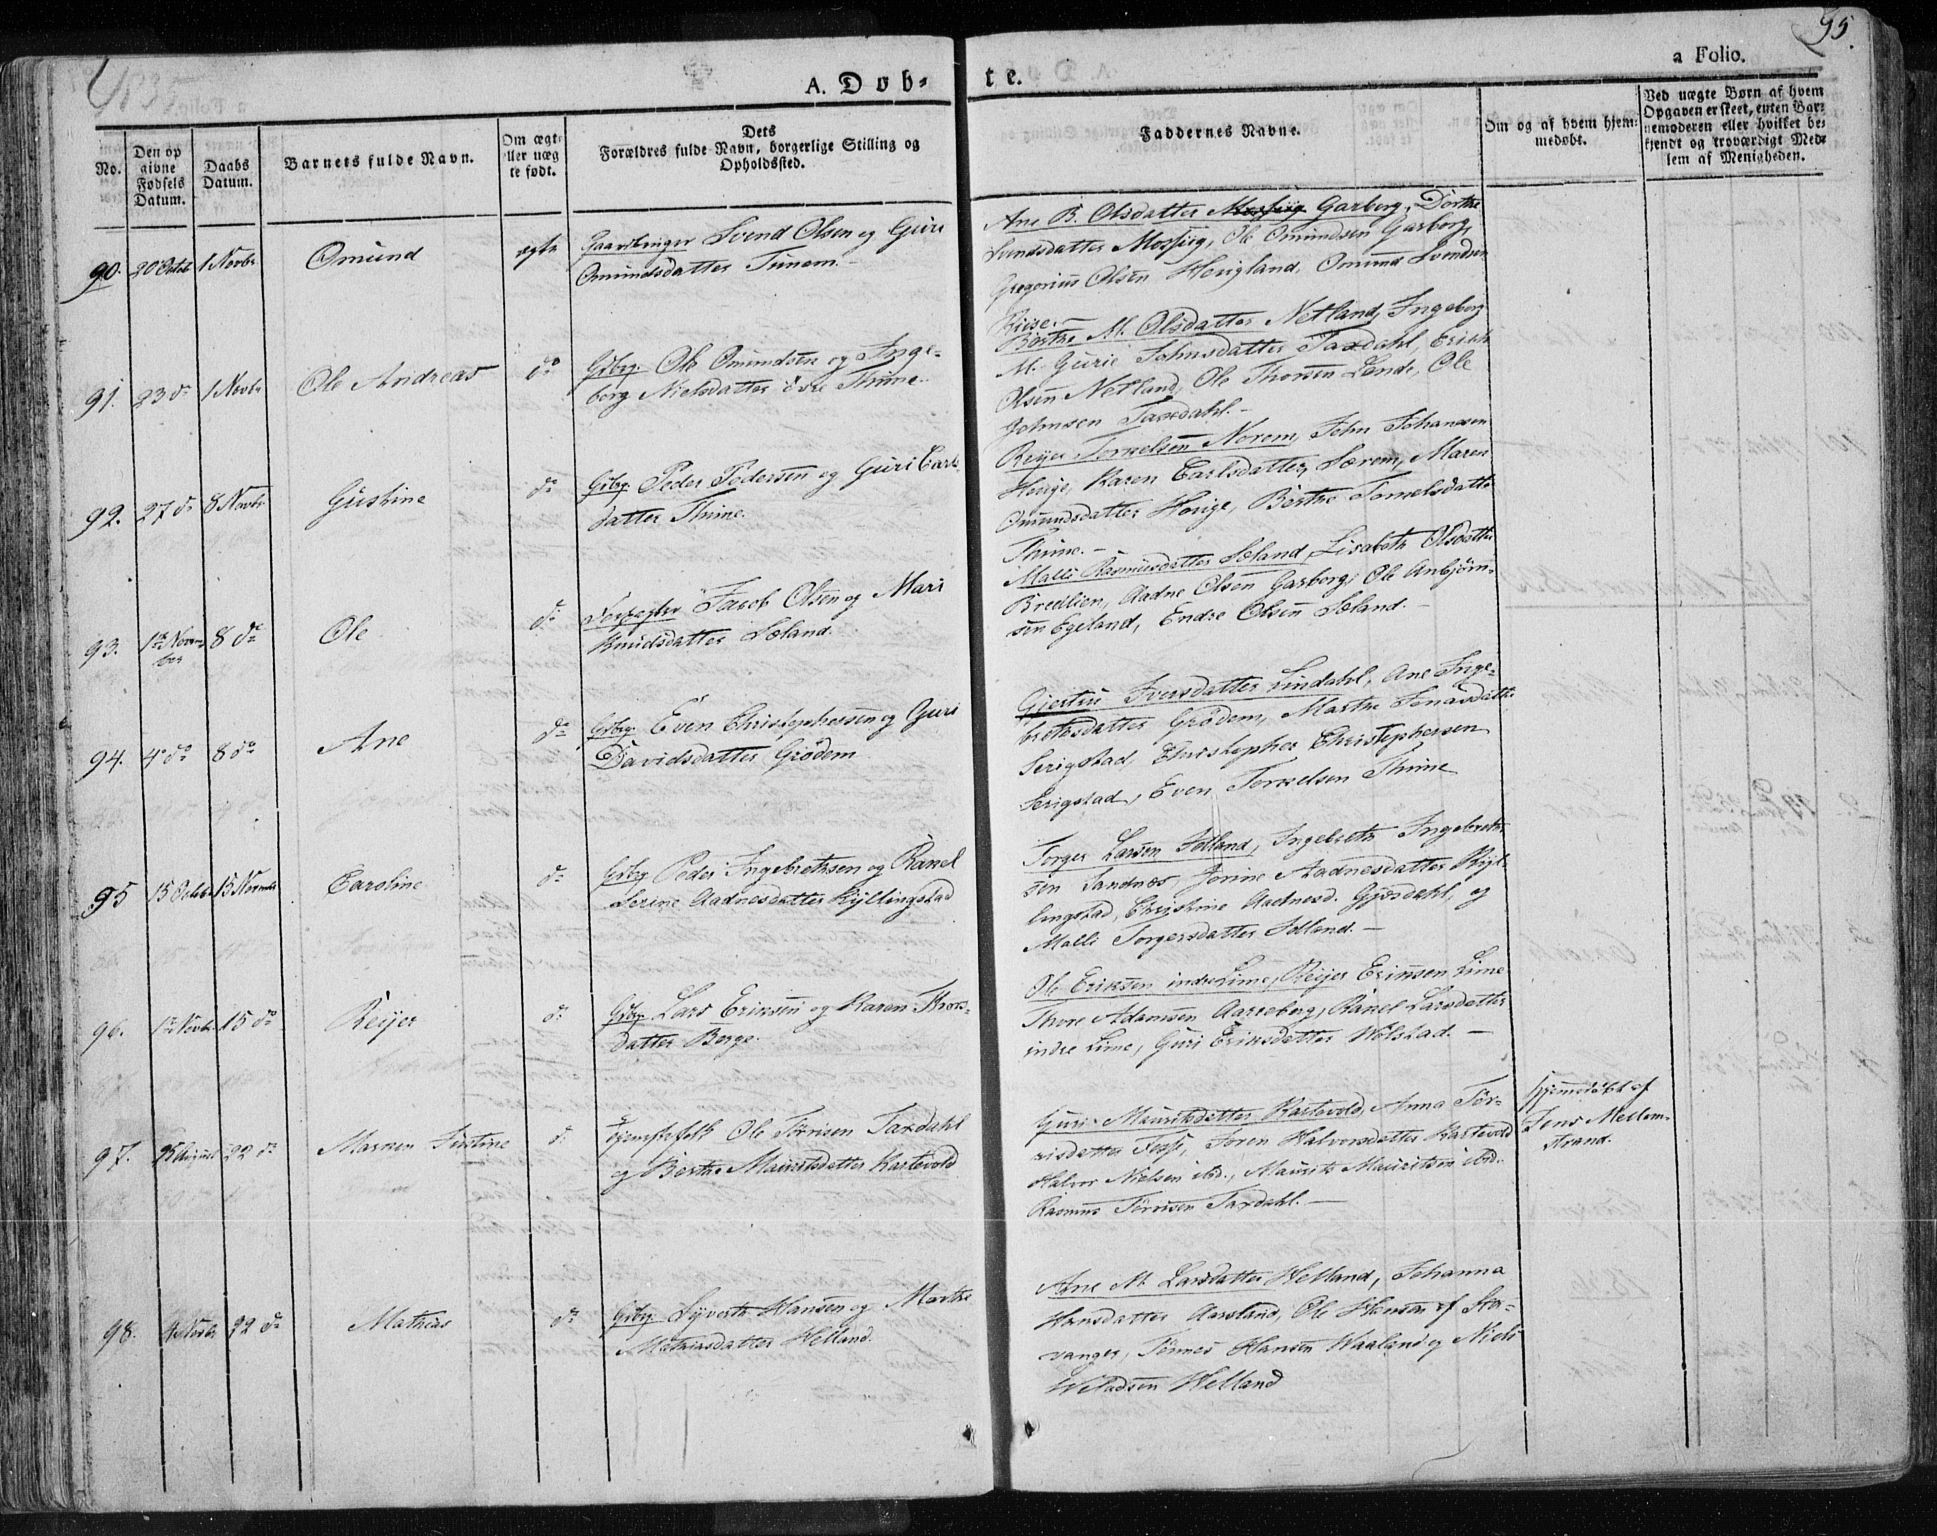 1835
95.
a Folio.
A. Døb-
te.
No.
Den op
givne
Fødsels
Datum.
Daabs
Datum.
Barnets fulde Navn.
Om ægte
eller uæg
te født.
Dets
Forældres fulde Navn, borgerlige Stilling og
Opholdssted.
Faddernes Navne.
Om og af hvem hjem-
medøbt.
Ved uægte Børn af hvem
Opgaven er skeet, enten Bar-
nemoderen eller hvilket be-
kjendt og troværdigt Med-
lem af Menigheden.
90. 20 Octob 1 Novbr Omund ægte
Gaardbruger Svend Olsen og Guri
Omundsdatter Tunem.
Ane B. Olsdatter Garborg, Dorthe
Mossig, Ole Omundsen Garborg,
Gregorius Olsen Hougland, Omund Svendsen
Riise.
91. 23 do 1 Novbr Ole Andreas do
Gbrg. Ole Omundsen og Inge-
borg Nielsdatter övre Thime.
Berthe M. Olsdatter Netland, Ingeborg
M. Gurie Johnsdatter Taxdahl, Erich
Olsen Netland, Ole Thorsen Lende, Ole
Johnsen Taxdahl.
92. 27 do 8 Novbr Gustine do
Gbrg. Peder Pedersen og Guri Carls
datter Thime.
Reijer Torkelsen Norem, John Johannesen
Houge, Karen Carlsdatter Særem, Maren
Omundsdatter Houge, Berthe Tormelsdatter
Thime.
93. 1ste Novem
ber 8 do Ole do
Forpagter Jacob Olsen og Mari
Knudsdatter Sæland.
Malli Rasmusdatter Sæland, Lisabeth Olsdatter
Bredlien, Aadne Olsen Garborg, Ole Anbjørn-
sen Egeland, Endre Olsen Sæland.
94. 4 do 8 do Ane do
Gbrg. Even Christophersen og Guri
Davidsdatter Grödem
Giertru Iversdatter Lindahl, Ane Inge-
bretsdatter Grödem, Marthe Jonasdatter
Serigstad, Christopher Christophersen
Serigstad, Even Torkelsen Thime
95 15 Octobr 15 Novmbr Caroline do
Gbrg. Peder Ingebrethsen og Ranel
Serine Aadnesdatter Kyllingstad
Torger Larsen Idland, Ingebreth Ingebreth
sen Sandnes, Jorine Aadnesdatter Kyl-
lingstad, Christine Aadnesd. Gjesdahl, og
Malli Torgersdatter Idland.
96. 1ste Novbr 15 do Reijer do
Gbrg. Lars Eriksen og Karen Thors-
datter Berge.
Ole Eriksen indre Lime, Reijer Eriksen Lime
Thore Adamsen Aarreberg, Ranel Larsdatter
indre Lime, Guri Eriksdatter Wolstad.
97. 25 August 22 do Maren Sirtine do
Egtefolk Ole Törrisen Taxdahl
og Berthe Mauritsdatter Kartevold
Guri Mauritsdatter Kartevold, Anna Tör-
risdatter Foss, Soren Halvorsdatter Kartevold
Halvor Nielsen ibd., Maurits Mauritsen ibd.
Rasmus Törrisen Taxdahl.
Hjemmedöbt af
Jens Mellem-
strand.
98. 4 Novbr 22 do Mathias do
Gbrg. Syvert Hansen og Marthe
Mathiasdatter Helland.
Ane M. Larsdatter Helland, Johanna
Hansdatter Aarsland, Ole Hansen af Sta-
vanger, Tönnes Hansen Waaland og Niels
Wetadsen Helland